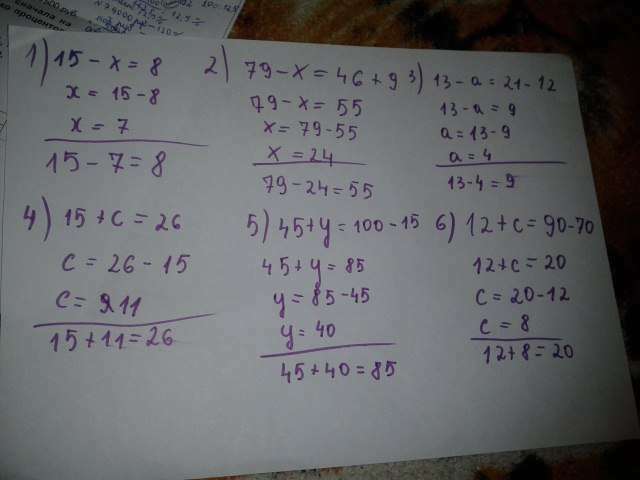 1) 15 - x = 8
x = 15 - 8
x = 7
15 - 7 = 8
2) 79 - x = 46 + 9
79 - x = 55
x = 79 - 55
x = 24
79 - 24 = 55
3) 13 - a = 21 - 12
13 - a = 9
a = 13 - 9
a = 4
13 - 4 = 9
4) 15 + c = 26
c = 26 - 15
c = 11
15 + 11 = 26
5) 45 + y = 100 - 15
45 + y = 85
y = 85 - 45
y = 40
45 + 40 = 85
6) 12 + c = 90 - 70
12 + c = 20
c = 20 - 12
c = 8
12 + 8 = 20